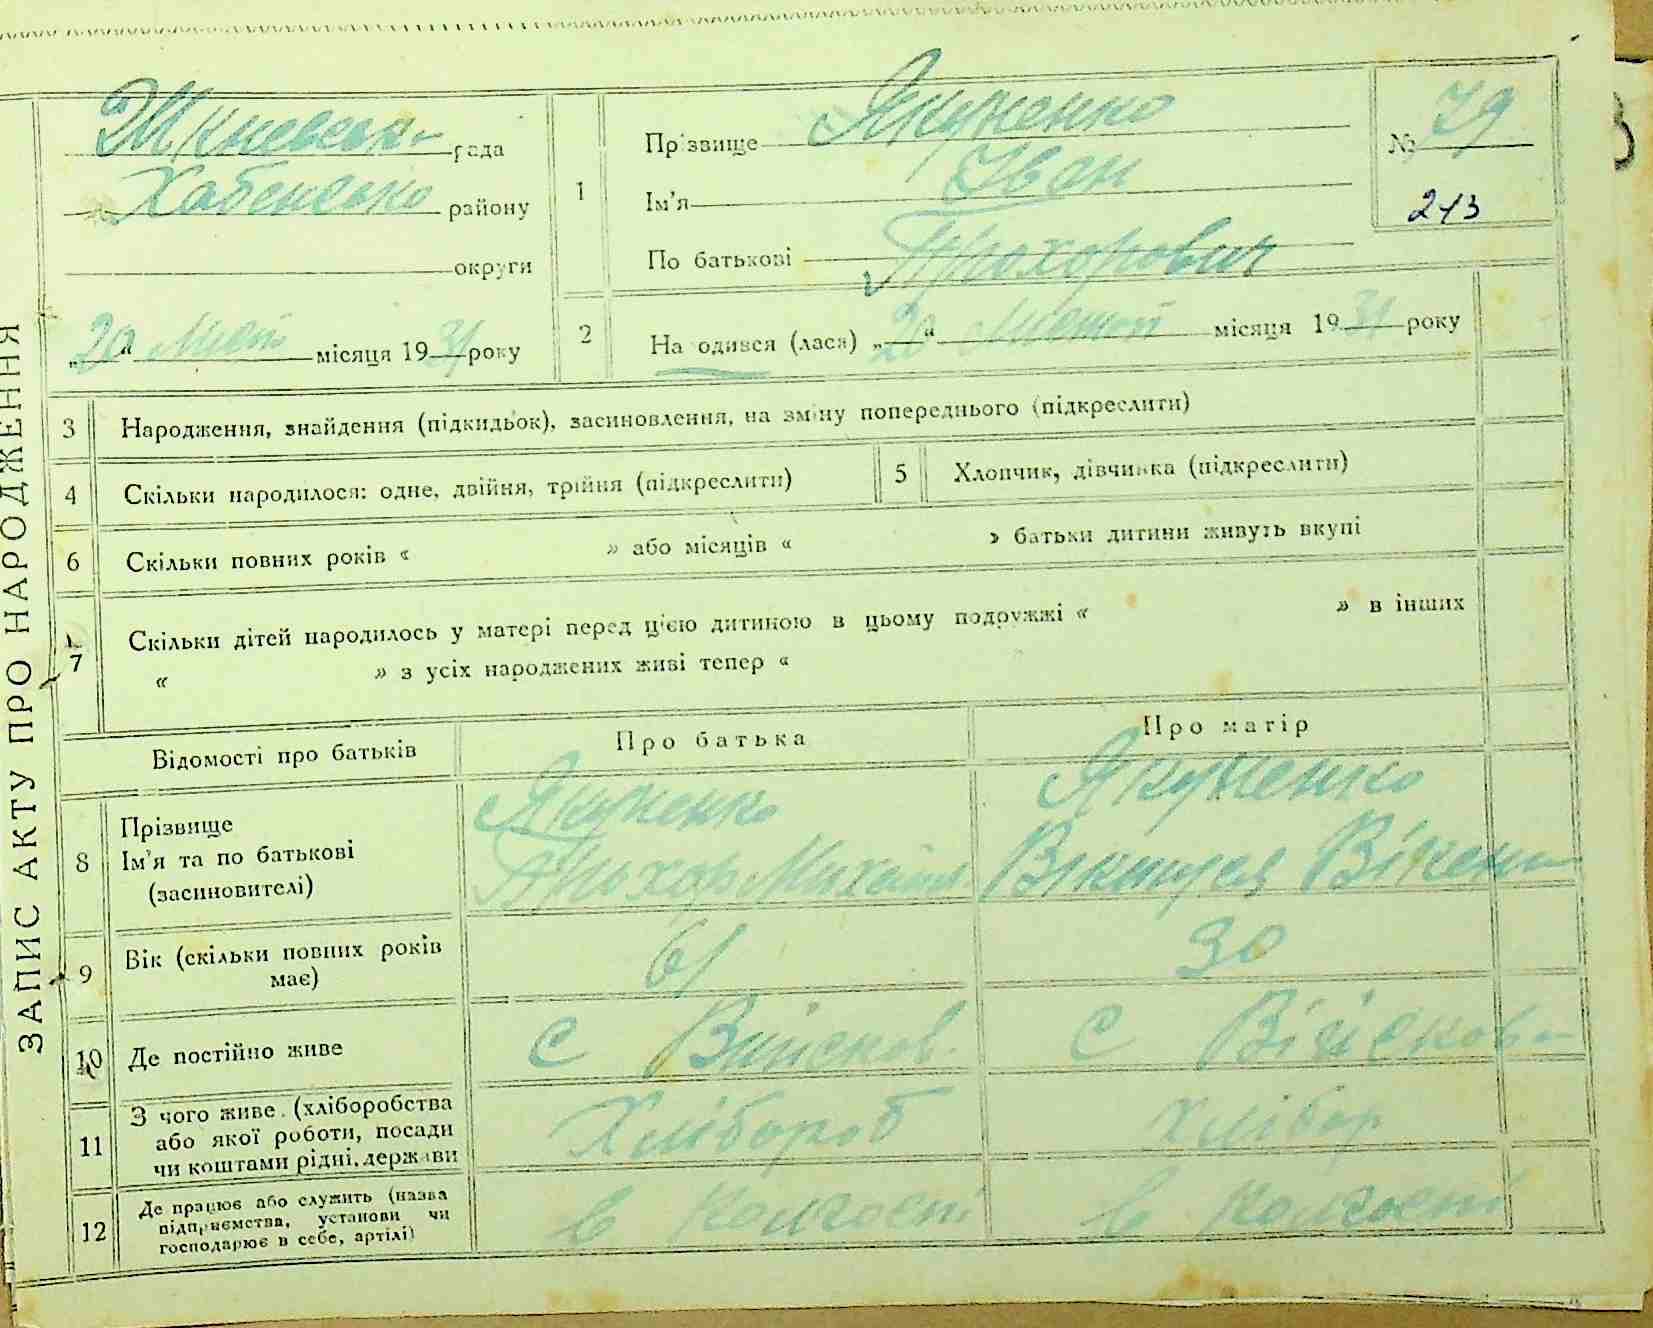 ЗАПИС АКТУ ПРО НАРОДЖЕННЯ
рада
Хабенсько району
округи
„20“ Лист місяця 1931 року
1
Прізвище Якуженко
Ім'я Іван
По батькові Прохорович
№ 79
213
2 Народився (лася) „20“ Листоп місяця 1931 року
3 Народження, знайдення (підкидьок), засиновлення, на зміну попереднього (підкреслити)
4 Скільки народилося: одне, двійня, трійня (підкреслити) 5 Хлопчик, дівчинка (підкреслити)
6 Скільки повних років « » або місяців « » батьки дитини живуть вкупі
7 Скільки дітей народилось у матері перед цією дитиною в цьому подружжі « » в інших
« » з усіх народжених живі тепер «
Відомості про батьків Про батька Про матір
8 Прізвище Якуженко Якуженко
Ім'я та по батькові
(засиновителі) Прохор Михайл Вікторія Вікен
9 Вік (скільки повних років
має) 61 30
10 Де постійно живе с Війсков с Війсков
11 З чого живе (хліборобства
або якої роботи, посади
чи коштами рідні, держави Хлібороб хлібор
12 Де працює або служить (назва
підприємства, установи чи
господарює в себе, артілі) в колгоспі в колгоспі